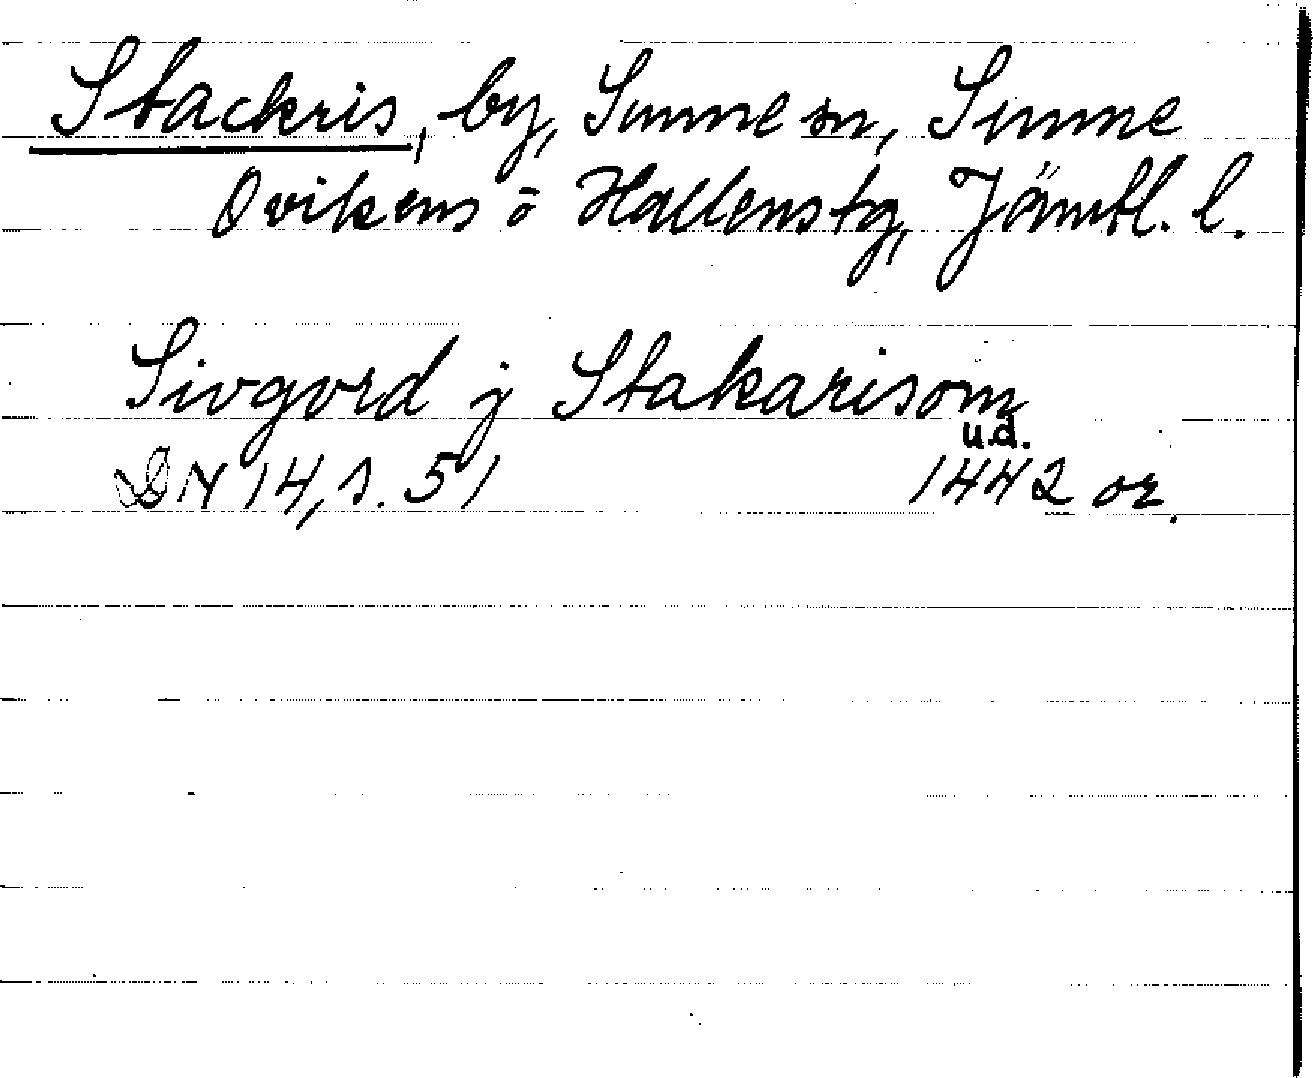 Stackris, by, Sunne sn, Sunne
Ovikens o Hallenstg, Jämtl. l.
Sivgord j Stakarisom
u.d.
DN 14, s. 51 1442 or.